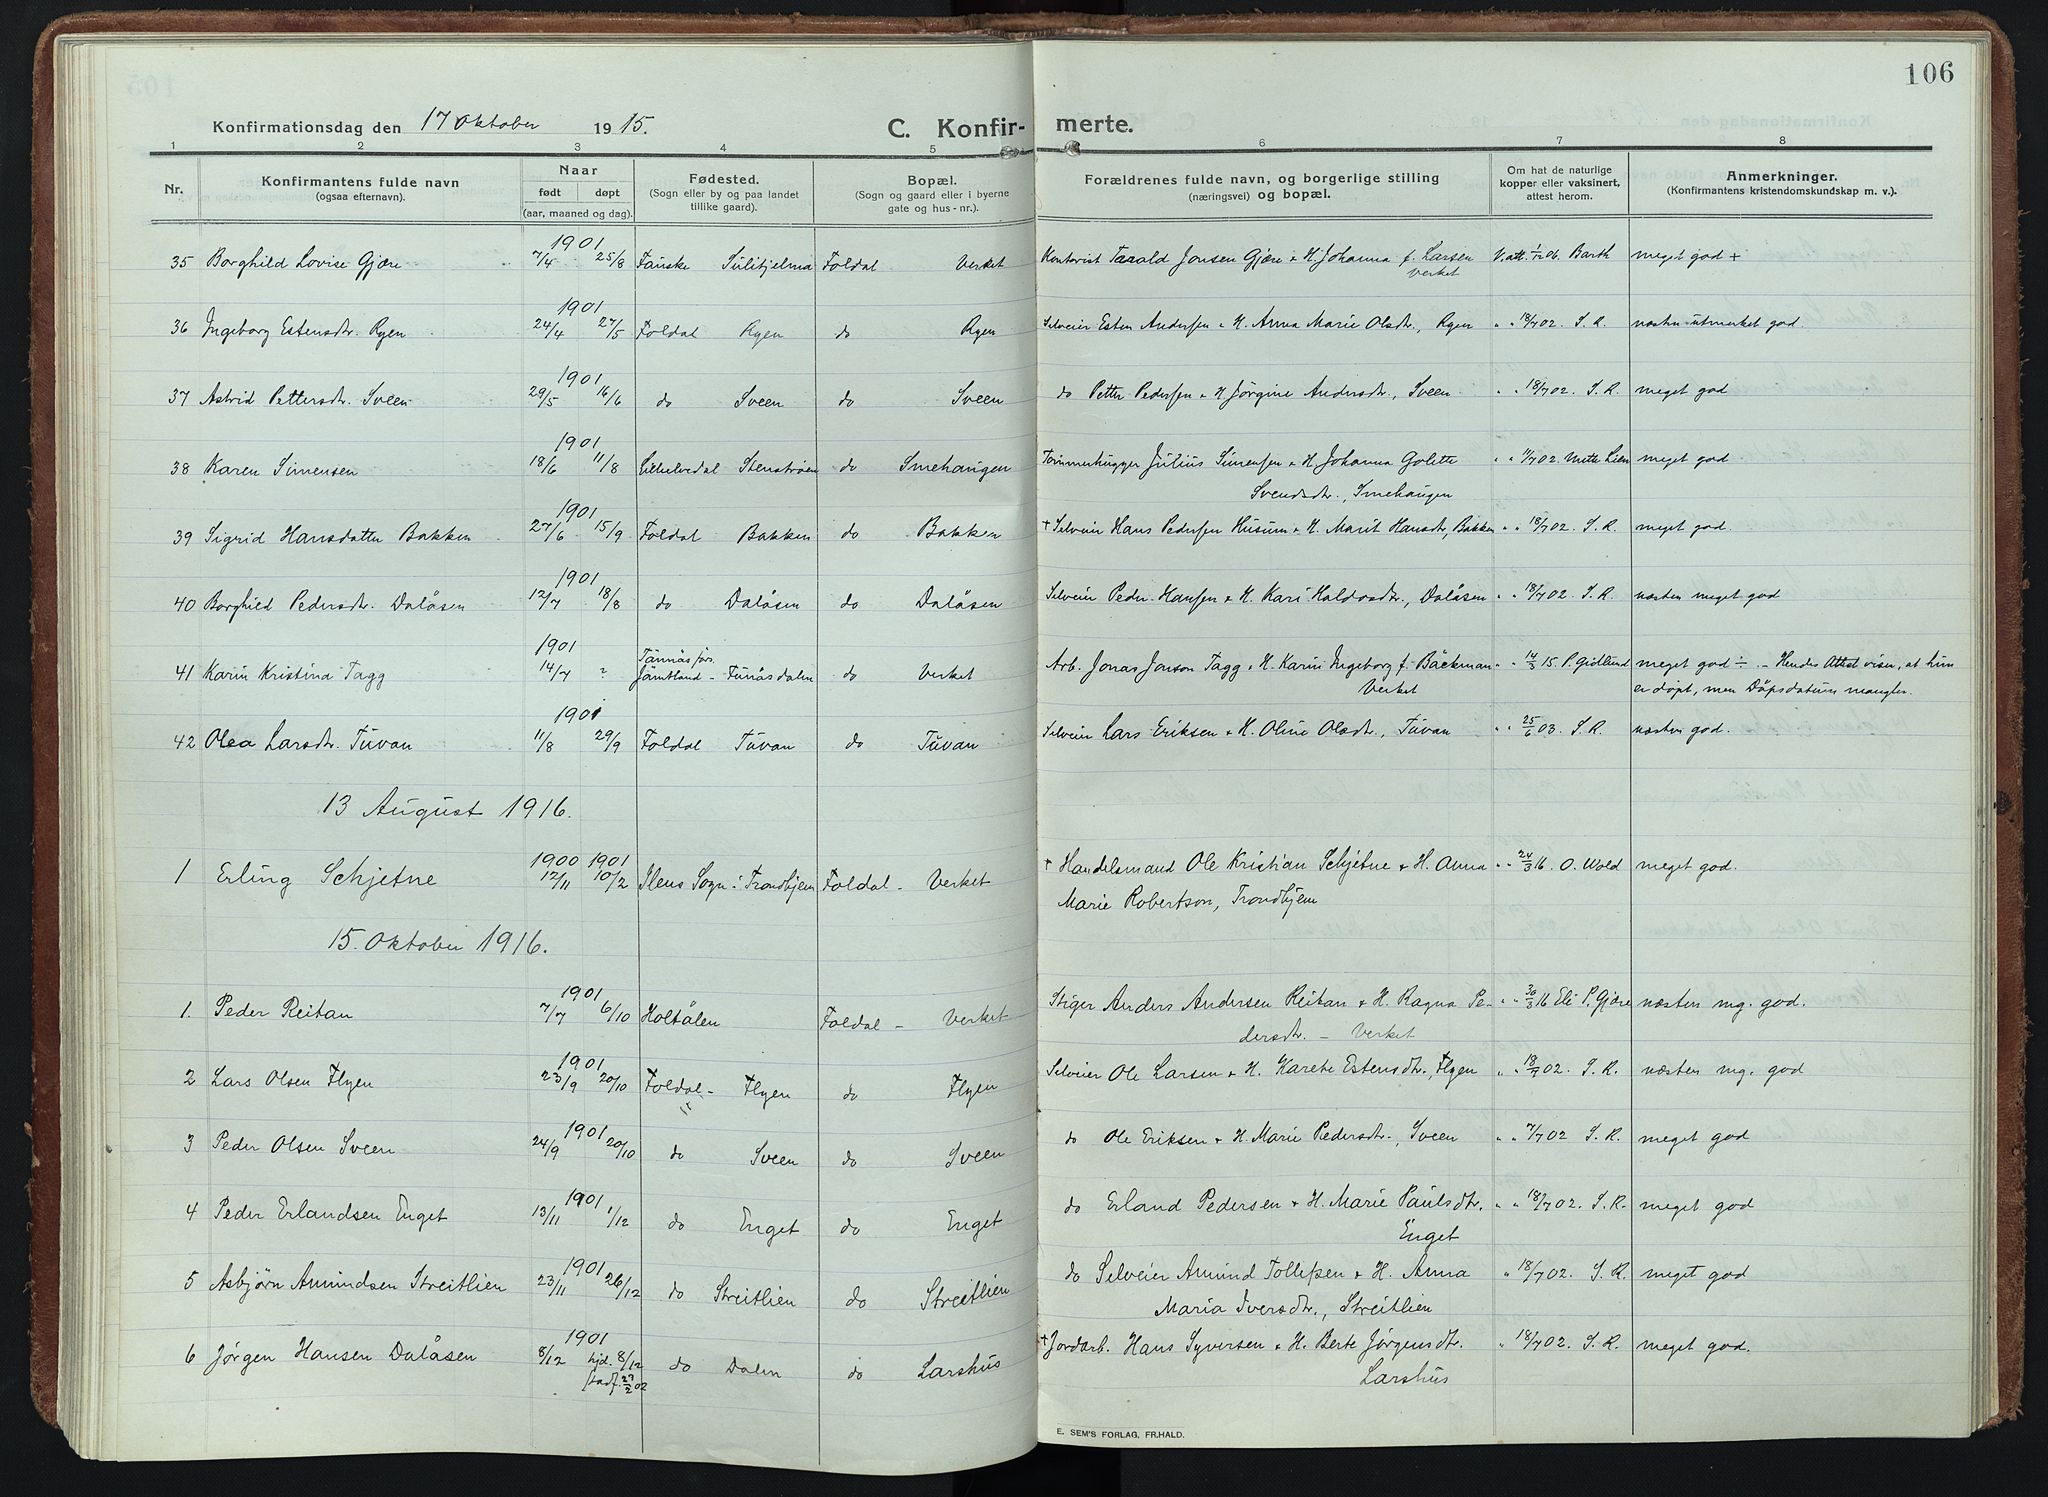 106
Konfirmationsdag den 17 Oktober 1915. C. Konfir- merte.
1 2 3 4 5 6 7 8
Nr. Konfirmantens fulde navn (ogsaa efternavn). Naar født døpt (aar, maaned og dag). Fødested. (Sogn eller by og paa landet tillike gaard). Bopæl. (Sogn og gaard eller i byerne gate og hus-nr.). Forældrenes fulde navn, og borgerlige stilling (næringsvei) og bopæl. Om hat de naturlige kopper eller vaksinert, attest herom. Anmerkninger. (Konfirmantens kristendomskundskap m. v.).
1901
35 Borghild Lovise Gjære 7/4 25/8 Fauske Sulitjelma Foldal Verket Kontorist Tarald Jonsen Gjære & H. Johanna f. Larsen V. att. 1/12 06. Barth meget god +
Verket
1901
36 Ingeborg Estensdtr. Ryen 24/4 27/5 Foldal Ryen do Ryen Selveier Esten Andersen & H. Anna Marie Olsdtr., Ryen " " 18/7 02. S. R. næsten utmerket god.
1901
37 Astrid Pettersdtr. Sveen 29/5 16/6 do Sveen do Sveen do Petter Pedersen & H. Jørgine Andersdtr., Sveen " " 18/7 02. S. R. meget god
1901
38 Karen Simensen 18/6 11/8 Stenstrøen do Smehaugen Tømmerhugger Julius Simensen & H. Johanna Golette " " 7/7 02. Mette Lien meget god
Svendsdtr., Smehaugen
1901
39 Sigrid Hansdatter Bakken 27/6 15/9 Foldal Bakken do Bakken † Selveier Hans Pedersen Husum & H. Marit Hansdtr, Bakken " " 18/7 02. S. R. meget god.
1901
40 Borghild Pedersdtr. Dalåsen 12/7 18/8 do Dalåsen do Dalåsen Selveier Peder Hansen & H. Kari Haldosdtr., Dalåsen " " 18/7 02. S. R. næsten meget god
1901 Tännäs förs.
41 Karin Kristina Tagg 14/7 ? Jämtland - Funäsdalen do Verket Arb. Jonas Jonson Tagg & H. Karin Ingeborg f. Bäckman " " 14/3 15. P. Gidlund meget god ÷ . - Hendes Attest viser, at hun
Verket er døpt, men Døpsdatum mangler.
1901
42 Olea Larsdtr. Tuvan 11/8 29/9 Foldal Tuvan do Tuvan Selveier Lars Eriksen & H. Oline Olsdtr., Tuvan " " 25/6 03. S. R. næsten god.
13 August 1916.
1900 1901
1 Erling Schjetne 12/11 10/2 Ilens Sogn i Trondhjem Foldal - Verket † Handelsmand Ole Kristian Schjetne & H. Anna " " 24/3 16. O. Wold meget god.
Marie Robertson, Trondhjem
15. Oktober 1916.
1901
1. Peder Reitan 7/7 6/10 Holtålen Foldal - Verket Stiger Anders Andersen Reitan & H. Ragna Pe- " " 30/3 16 Eli P. Gjære næsten mg. god.
dersdtr. - Verket
1901
2 Lars Olsen Flyen 23/9 20/10 Foldal - Flyen do Flyen Selveier Ole Larsen & H. Karete Estensdtr., Flyen " 18/7 02. S. R. næsten mg. god
1901
3 Peder Olsen Sveen 24/9 20/10 do Sveen do Sveen do Ole Eriksen & H. Marie Pedersdtr., Sveen " " 7/7 02 S. R. meget god
1901
4 Peder Erlandsen Enget 13/11 1/12 do Enget do Enget do Erland Pedersen & H. Marie Paulsdtr. " " 18/7 02. S. R. meget god
Enget
1901
5 Asbjørn Amundsen Streitlien 23/11 26/12 do Streitlien do Streitlien do Selveier Amund Tollefsen & H. Anna " 18/7 02. S. R. meget god
Maria Iversdtr., Streitlien
1901
6 Jørgen Hansen Dalåsen 8/12 hjd. 8/12 do Dalen do Larshus † Jordarb. Hans Syversen & H. Berte Jørgensdtr. " 18/7 02. S. R. meget god.
stadf. 23/2 02 Larshus
E. SEM'S FORLAG, FR.HALD.